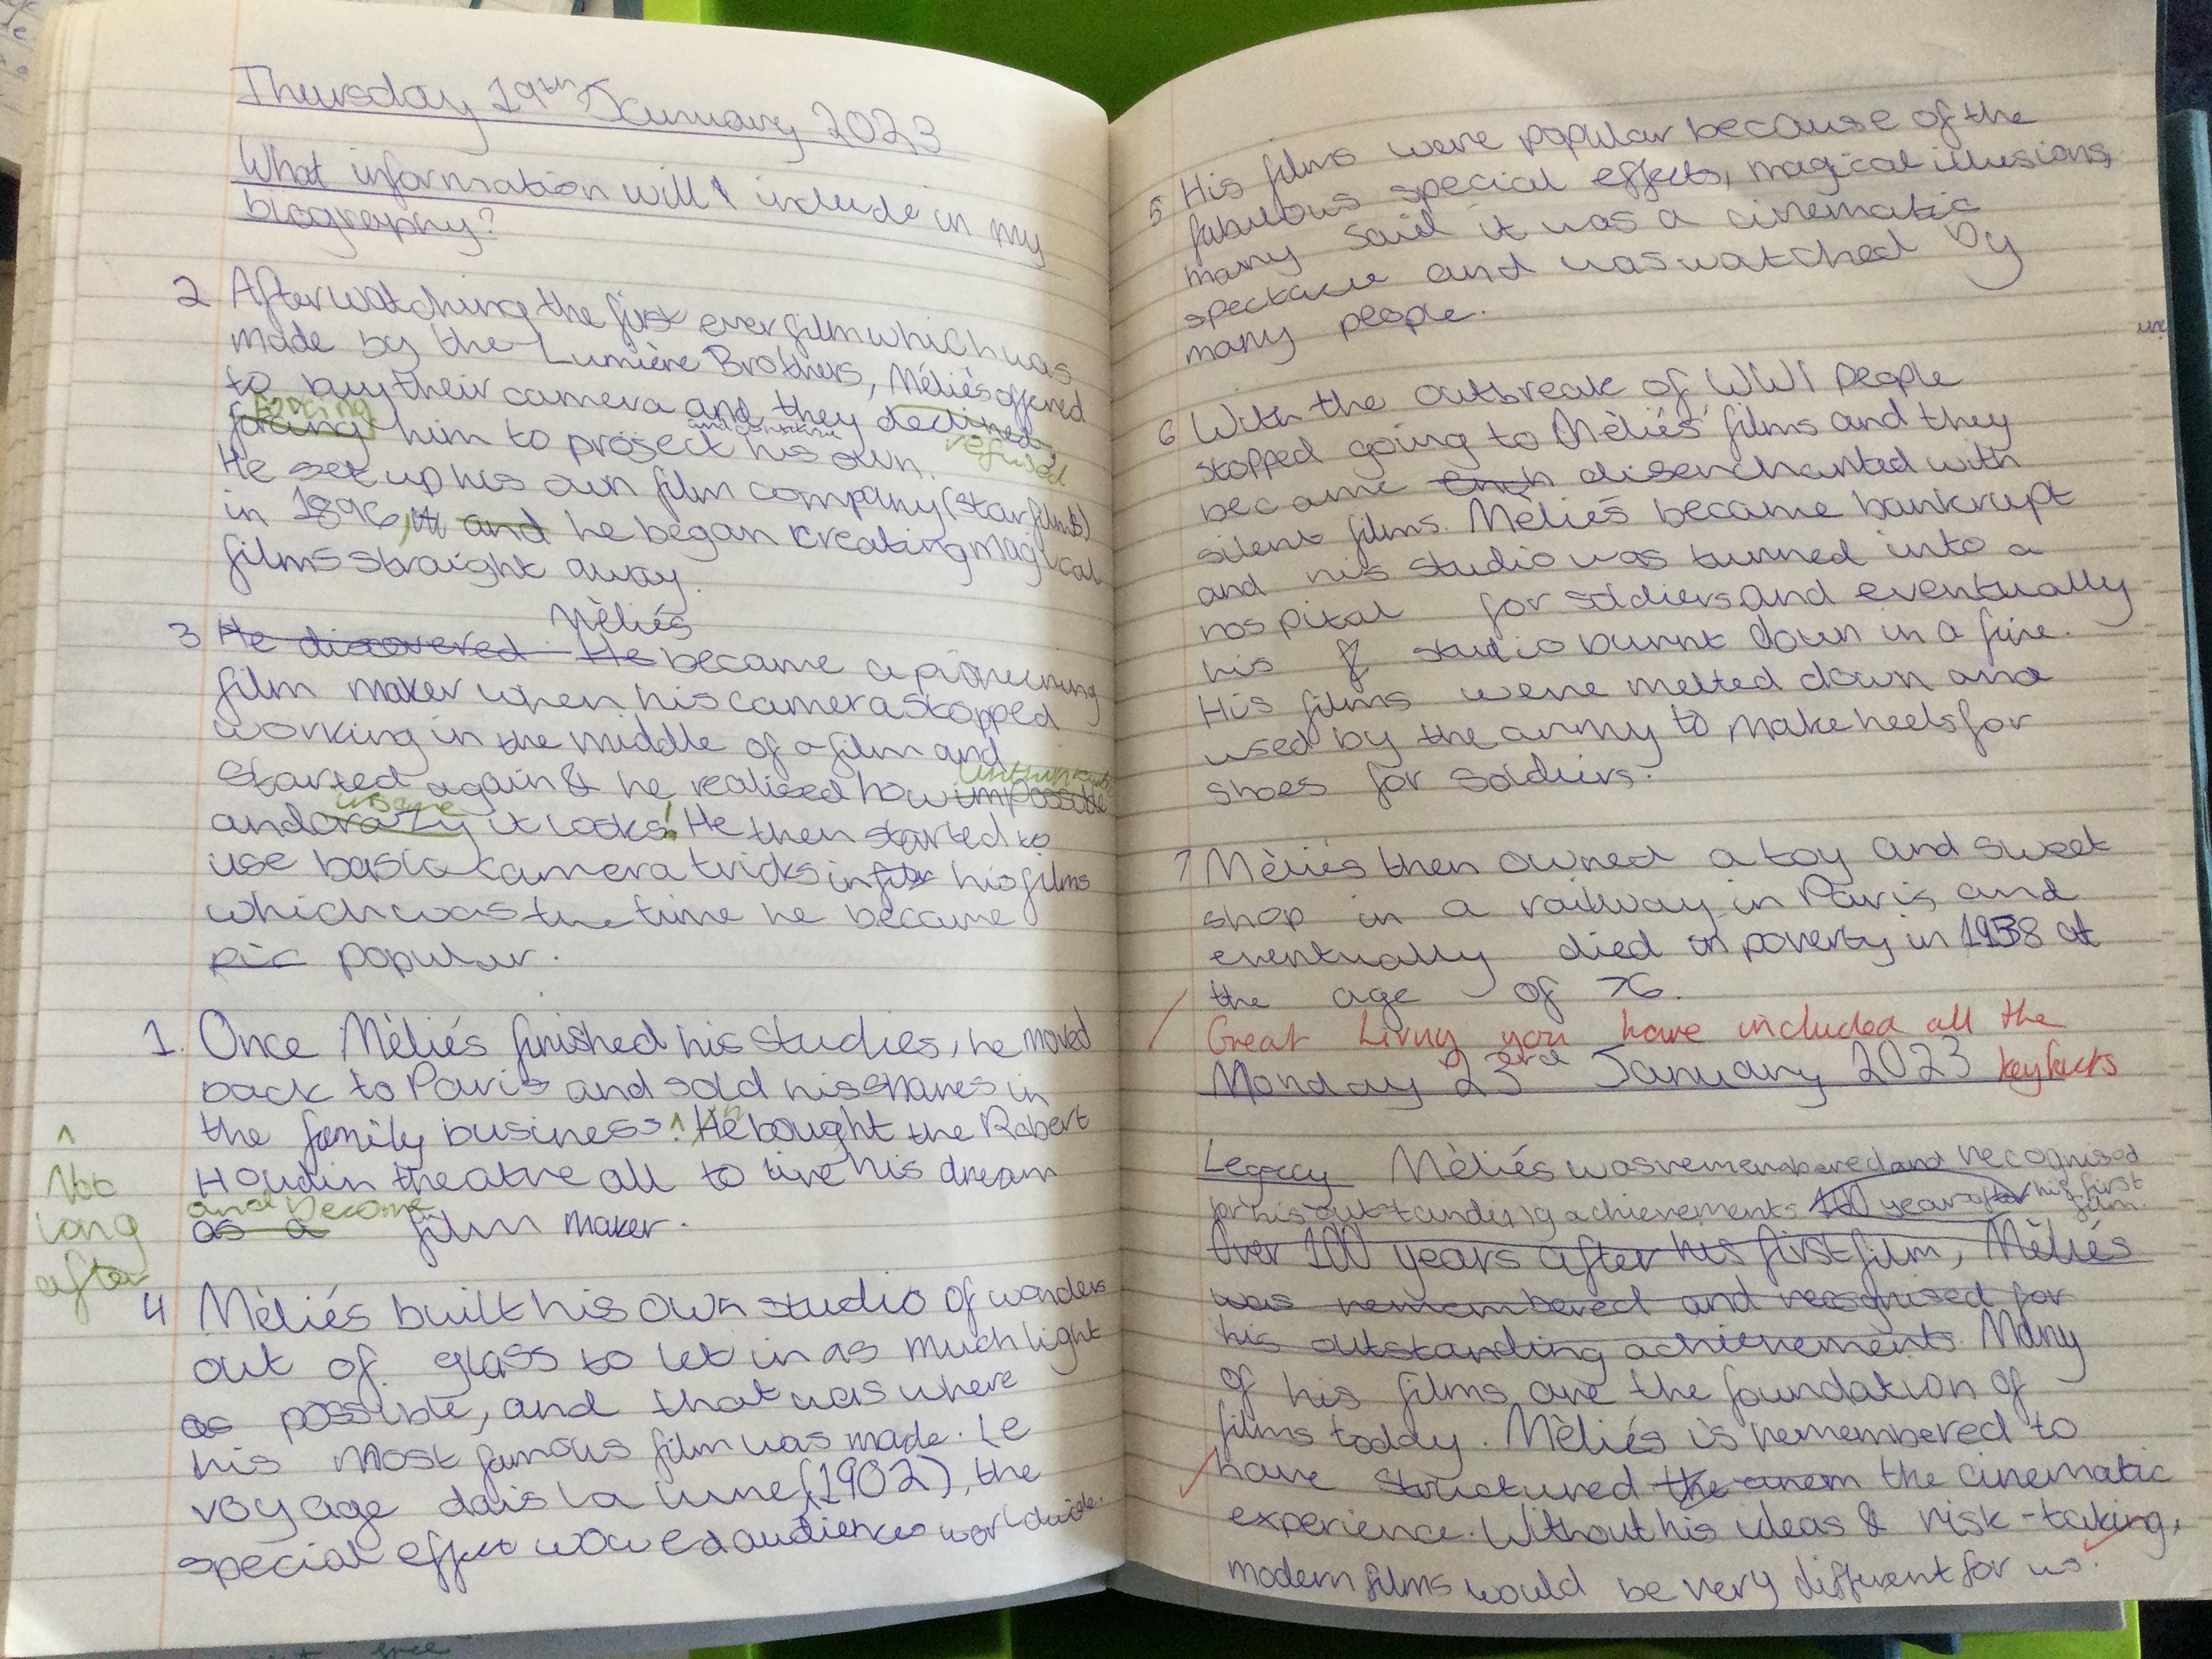 Thursday 19th January 2023
What information will I include in my
biography?
2 After watching the first ever film which was
made by the Lumière Brothers, Mèliés offered
to buy their camera and they declined, refused
forcing forcing him to project and continue his own.
He set up his own film company (star films)
in 1896, and he began creating magical
films straight away.
Mèliés
3 He discovered He became a pioneering
film maker when his camera stopped
working in the middle of a film and
started again & he realised how impossible
insane
and crazy it looks! He then started to
use basic camera tricks in his films
which was the time he became
pic popular.
1. Once Mèliés finished his studies, he moved
back to Paris and sold his shares in
the family business. ^ He bought the Robert
Houdin theatre all to live his dream
and become
as a film maker.
^
Not
long
after
4 Mèliés built his own studio of wonders
out of glass to let in as much light
as possible, and that was where
his most famous film was made. Le
voyage dais la lune (1902), the
special effect wowed audiences worldwide.
5 His films were popular because of the
fabulous special effects, magical illusions,
many said it was a cinematic
spectacle and was watched by
many people.
6 With the outbreak of WW1 people
stopped going to Mèliés' films and they
became disenchanted with
silent films. Mèliés became bankrupt
and his studio was turned into a
hospital for soldiers and eventually
his studio burnt down in a fire.
His films were melted down and
used by the army to make heels for
shoes for soldiers.
7 Mèliés then owned a toy and sweet
shop in a railway in Paris and
eventually died in poverty in 1938 at
the age of 76.
Great Livvy you have included all the
key facts
Monday 23rd January 2023
Legacy Mèliés was remembered and recognised
for his outstanding achievements 100 year after his first
film.
Over 100 years after his first film, Mèliés
was remembered and recognised for
his outstanding achievements. Many
of his films are the foundation of
films today. Mèliés is remembered to
have structured the the cinematic
experience. Without his ideas & risk-taking,
modern films would be very different for us.